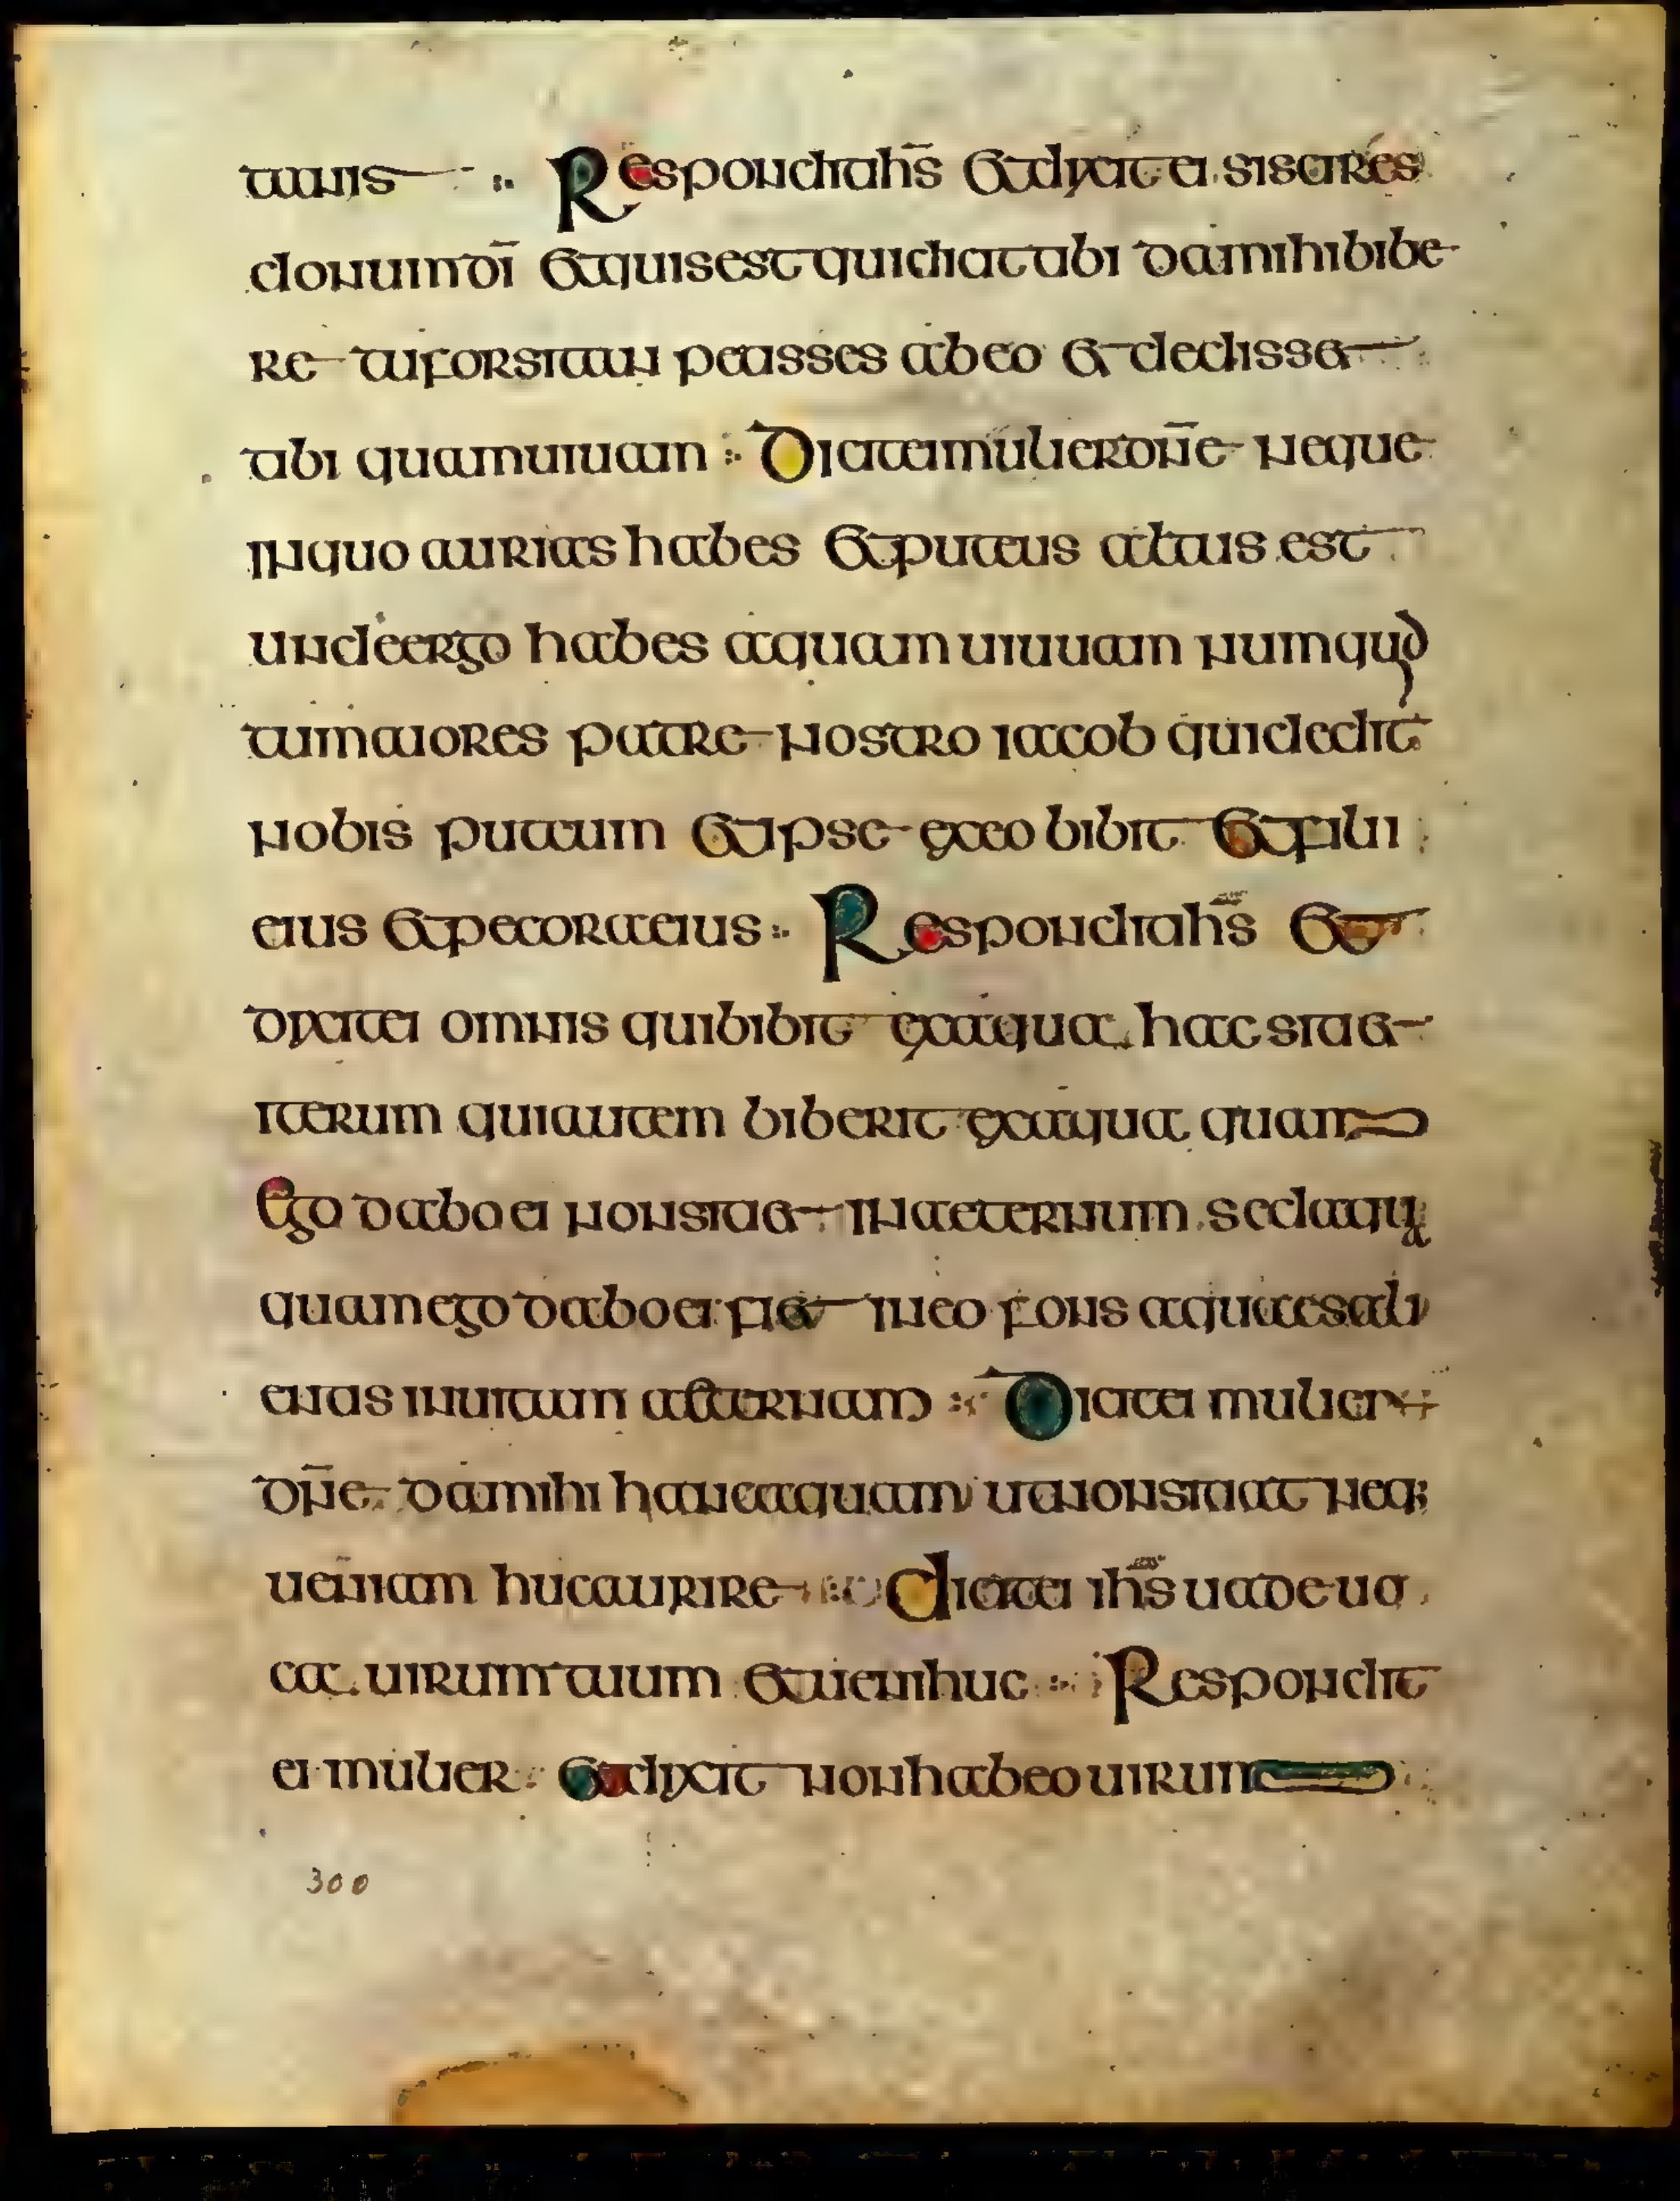 tanis Respondit ihs et dixit ei si scires
donum di et quis est qui dicat tibi da mihi bibe
re tu forsitan petisses ab eo et dedisset
tibi quam uiuam Dicit ei mulier dne neque
in quo aurias habes et puteus altus est
unde ergo habes aquam uiuuam numquid
tu maiores patre nostro iacob qui dedit
nobis puteum et ipse ex eo bibit et filii
eius et pecora eius Respondit ihs et
dixit ei omnis qui bibit ex aqua hac sitiet
iterum qui autem biberit ex aqua quam
Ego dabo ei non sitiet in aeternum sed aqua
quam ego dabo ei fiet in eo fons aquae sali
entis in uitam aeternam Dicit ei mulier
dne da mihi hanc aquam ut non sitiat neq;
ueniam huc aurire dicit ei ihs uade uo
ca uirum tuum et ueni huc Respondit
ei mulier et dixit non habeo uirum
300